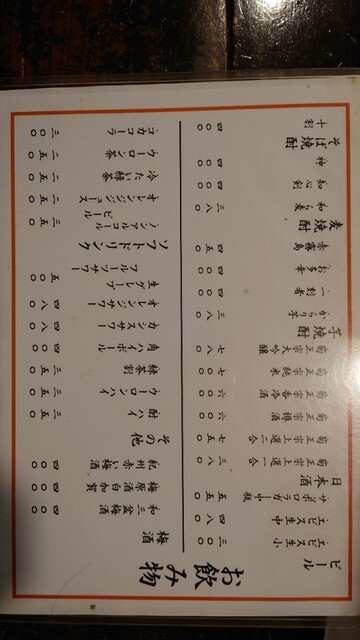 お飲み物
ビール
エビス生小 三〇〇
エビス生中 四八〇
サッポロラガー中瓶 五五〇
日本酒
菊正宗上選一合 三八〇
菊正宗上選二合 七五〇
菊正宗樽酒 六〇〇
菊正宗香冷酒 六〇〇
菊正宗純米 七〇〇
菊正宗大吟醸 七八〇
芋焼酎
からり芋 三八〇
一刻者 四〇〇
お多幸 四〇〇
赤霧島 四五〇
麦焼酎
和ら麦 三八〇
知心剣 四〇〇
神 四〇〇
そば焼酎
十割 四〇〇
梅酒
和三盆梅酒 四〇〇
梅酒原酒白加賀 四〇〇
紀州赤い梅酒 四〇〇
その他
酎ハイ 三五〇
ウーロンハイ 三五〇
緑茶割 三五〇
角ハイボール 四〇〇
カシスサワー 四八〇
オレンジサワー 四八〇
生グレープフルーツサワー 五〇〇
ソフトドリンク
ノンアルコールビール 三五〇
オレンジジュース 二五〇
冷たい緑茶 二五〇
ウーロン茶 二五〇
コカコーラ 三〇〇